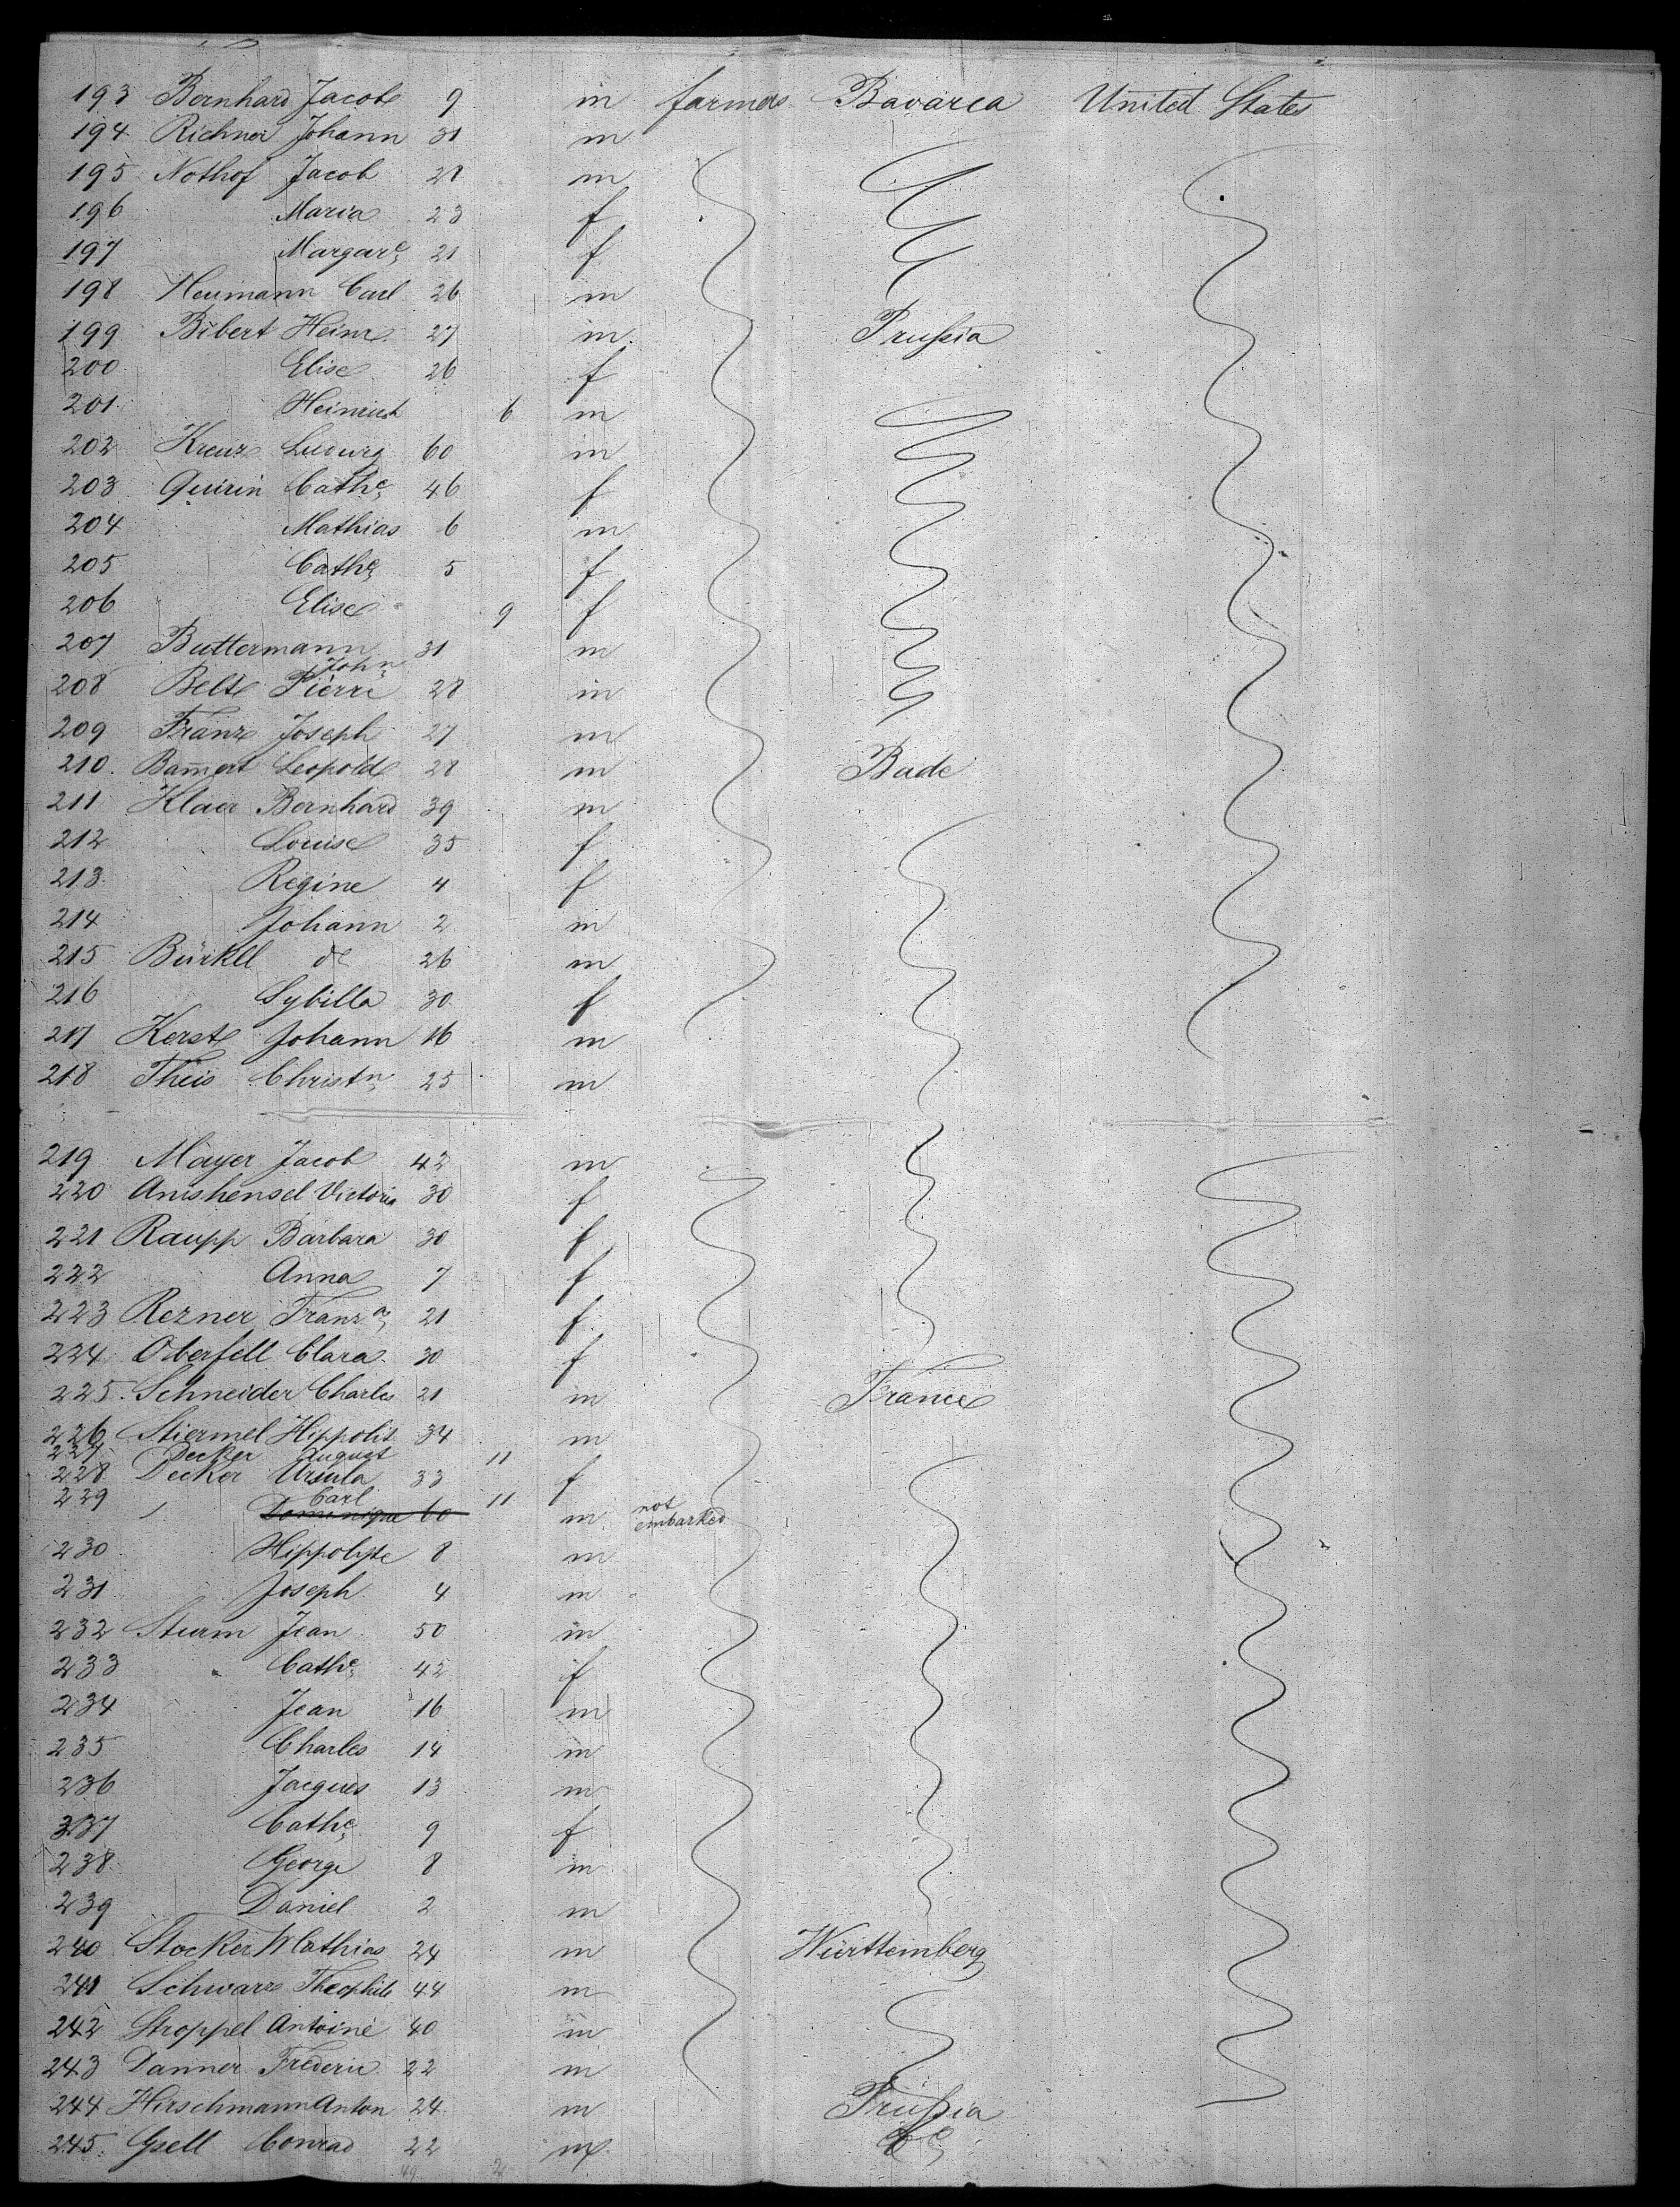 193 Bernhard Jacob 9 m farmers Bavarea United States
194 Richner Johann 31 m
195 Nothof Jacob 28 m
196 Maria 23 f
197 Margare 21 f
198 Heumann Carl 26 m
199 Bibert Heinr 27 m Prussia
200 Elise 26 f
201 Heinrich 6 m
202 Kreuz Ludwig 60 m
203 Quirin Cathe 46 f
204 Mathias 6 m
205 Cathe 5 f
206 Elise 9 f
207 Buttermann 31 m
John
208 Belte Pierre 28 m
209 Franz Joseph 27 m
210. Bam̅ert Leopold 28 m Bade
211 Klaer Bernhard 39 m
212 Louise 35 f
213 Regine 4 f
214 Johann 2 m
215 Bürkll do 26 m
216 Sybilla 30 f
217 Kerste Johann 16 m
218 Theis Christn 25 m
219 Mayer Jacob 42 m
220 Amshensel Victoria 30 f
221 Raupp Barbara 30 f
222 Anna 7 f
223 Rezner Franza 21 f
224 Oberfell Clara 30 f
225. Schneider Charles 21 m France
226 Stiermel Hippolit 34 m
227 Decker August 11
228 Decker Ursula 33 f
229 Carl 11
Dominique 60 m not embarked
230 Hippolyte 8 m
231 Joseph 4 m
232 Sturm Jean 50 m
233 " Cathe 42 f
234 Jean 16 m
235 Charles 14 m
236 Jacques 13 m
237 Cathe 9 f
238 George 8 m
239 Daniel 2 m
240 Stocker Mathias 24 m Württemberg
241 Schwarz Theophile 44 m
242 Stroppel Antoine 40 m
243 Danner Frederic 22 m
244 Hirschmann Anton 24 m Prussia
245. Gsell Conrad 22 m do